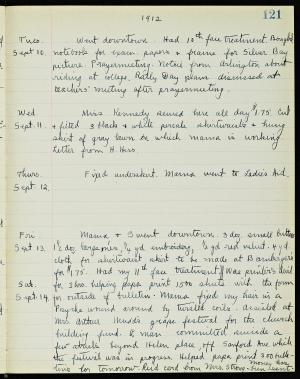 1912 121
Tues. Went downtown. Had 10th face treatment. Bought
Sept. 10. notebooks for exam. papers & frame for Silver Bay
picture. Prayermeeting. Notice from Arlington about
riding at college. Rally Day plans discussed at
teachers' meeting after prayermeeting.
Wed. Miss Kennedy sewed here all day $1.75. Cut
Sept. 11. & fitted 3 black & white percale shirtwaists & hung
skirt of gray lawn on which mama is working
Letter from H. Hess.
Thurs. Fixed underskirt. Mama went to Ladies Aid.
Sept 12.
Fri. Mama & I went downtown. 3 doz. small buttons
Sept 13. yd. embroidery, yd red velvet. 4 yd.
cloth for shirtwaist skirt to be made at
for $1.75. Had my 11th face treatment. Was printer's devil
Sat. for 3 hrs. helping papa print 1500 sheets with the form
Sept. 14. for outside of bulletin. Mama fixed my hair in a
Psyche wound around by twelve coils. Assisted at
Mrs. Arthur grape festival for the church
building fund. & man committed suicide a
few blocks beyond Helen place, off Sanford Ave while
the festival was in progress. Helped papa print 300
for tomorrow.